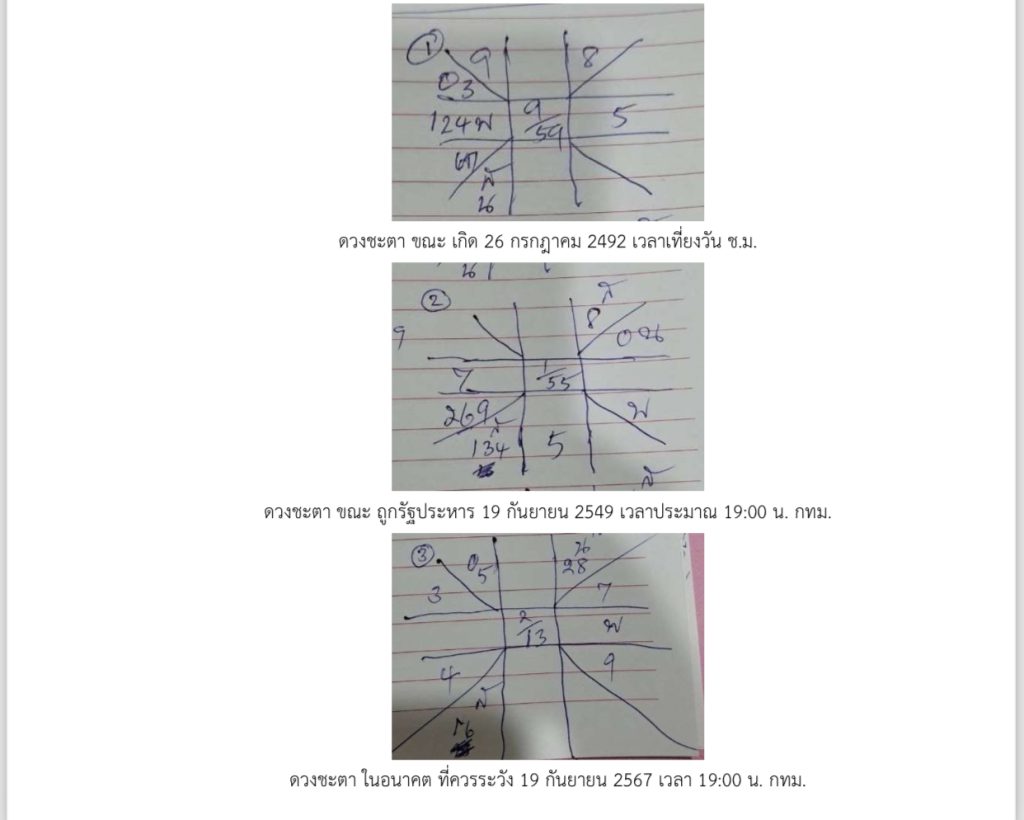 ①
9
8
03
124พ
9/59
5
ส
น
ดวงชะตา ขณะ เกิด 26 กรกฎาคม 2492 เวลาเที่ยงวัน ช.ม.
②
8
9
0น
7
1/55
269
พ
ส
134
5
ส
ดวงชะตา ขณะ ถูกรัฐประหาร 19 กันยายน 2549 เวลาประมาณ 19:00 น. กทม.
③
05
น
28
3
7
2/13
พ
4
9
ส
ดวงชะตา ในอนาคต ที่ควรระวัง 19 กันยายน 2567 เวลา 19:00 น. กทม.